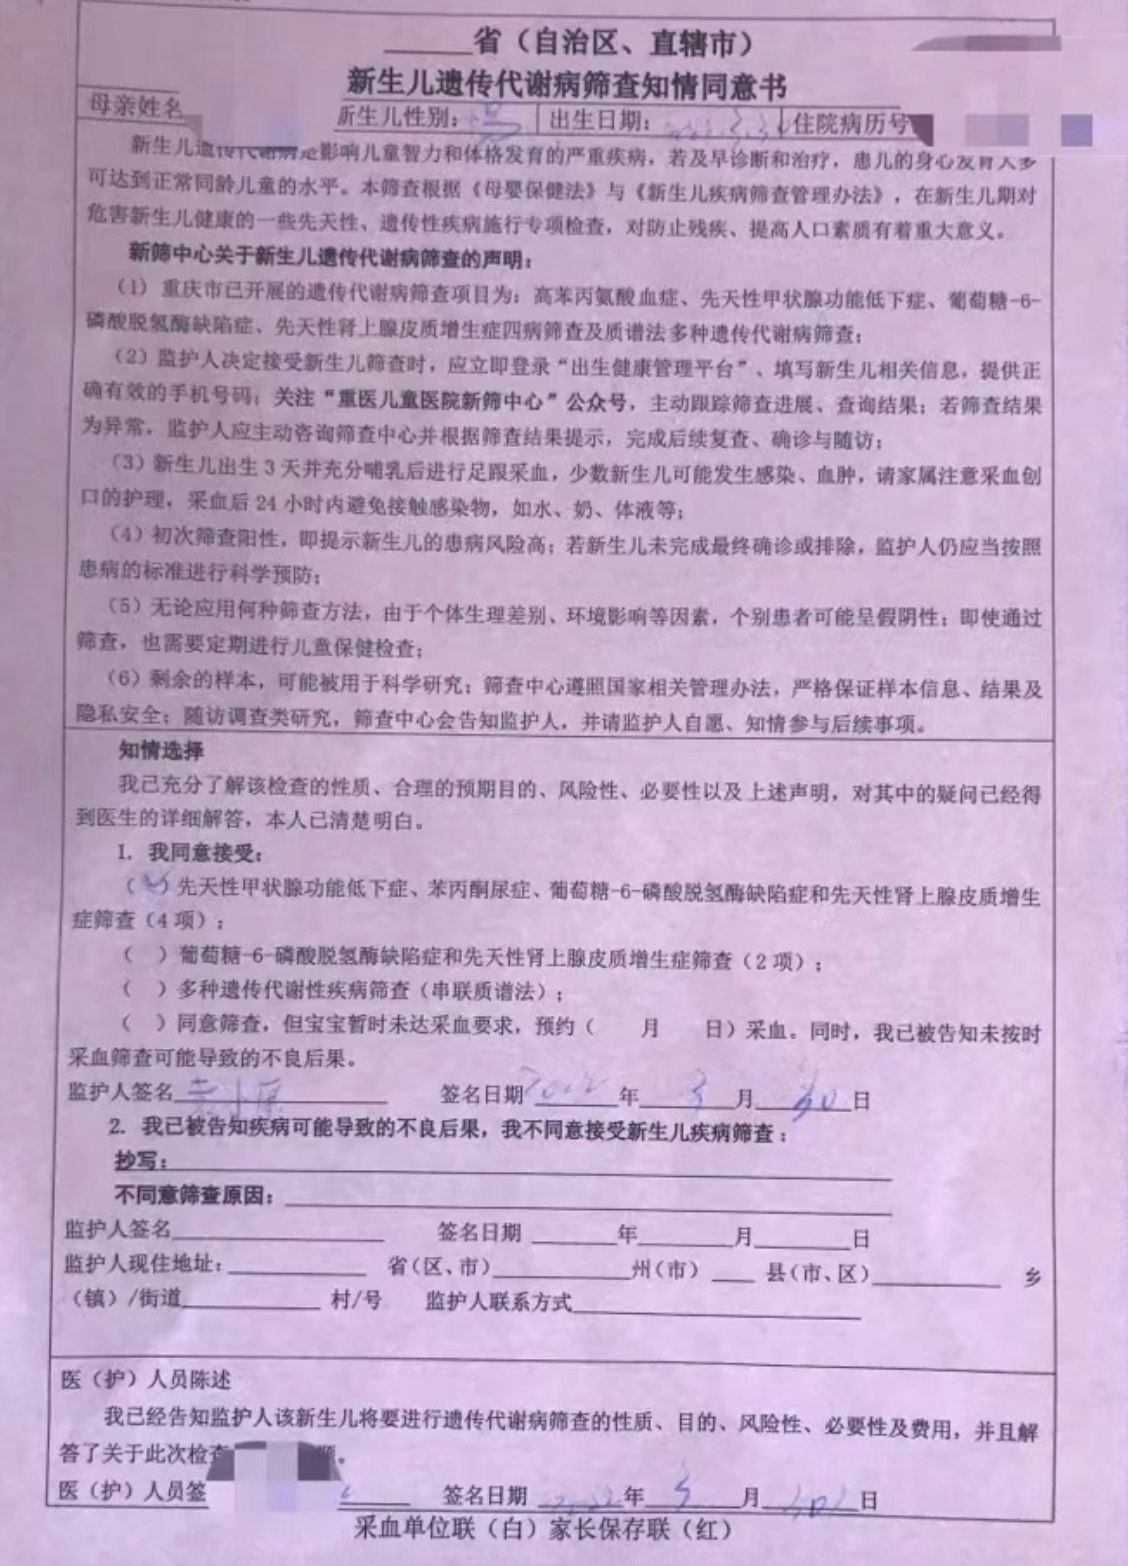 省（自治区、直辖市）
新生儿遗传代谢病筛查知情同意书
母亲姓名 新生儿性别： 出生日期： 住院病历号
新生儿遗传代谢病是影响儿童智力和体格发育的严重疾病，若及早诊断和治疗，患儿的身心发育大多
可达到正常同龄儿童的水平。本筛查根据《母婴保健法》与《新生儿疾病筛查管理办法》，在新生儿期对
危害新生儿健康的一些先天性、遗传性疾病施行专项检查，对防止残疾、提高人口素质有着重大意义。
新筛中心关于新生儿遗传代谢病筛查的声明：
（1）重庆市已开展的遗传代谢病筛查项目为：高苯丙氨酸血症、先天性甲状腺功能低下症、葡萄糖-6-
磷酸脱氢酶缺陷症、先天性肾上腺皮质增生症四病筛查及质谱法多种遗传代谢病筛查；
（2）监护人决定接受新生儿筛查时，应立即登录“出生健康管理平台”、填写新生儿相关信息，提供正
确有效的手机号码；关注“重医儿童医院新筛中心”公众号，主动跟踪筛查进展、查询结果；若筛查结果
为异常，监护人应主动咨询筛查中心并根据筛查结果提示，完成后续复查、确诊与随访；
（3）新生儿出生3天并充分哺乳后进行足跟采血，少数新生儿可能发生感染、血肿，请家属注意采血创
口的护理，采血后24小时内避免接触感染物，如水、奶、体液等；
（4）初次筛查阳性，即提示新生儿的患病风险高；若新生儿未完成最终确诊或排除，监护人仍应当按照
患病的标准进行科学预防；
（5）无论应用何种筛查方法，由于个体生理差别、环境影响等因素，个别患者可能呈假阴性；即使通过
筛查，也需要定期进行儿童保健检查；
（6）剩余的样本，可能被用于科学研究；筛查中心遵照国家相关管理办法，严格保证样本信息、结果及
隐私安全；随访调查类研究，筛查中心会告知监护人，并请监护人自愿、知情参与后续事项。
知情选择
我已充分了解该检查的性质、合理的预期目的、风险性、必要性以及上述声明，对其中的疑问已经得
到医生的详细解答，本人已清楚明白。
1. 我同意接受：
（✓）先天性甲状腺功能低下症、苯丙酮尿症、葡萄糖-6-磷酸脱氢酶缺陷症和先天性肾上腺皮质增生
症筛查（4项）；
（ ）葡萄糖-6-磷酸脱氢酶缺陷症和先天性肾上腺皮质增生症筛查（2项）；
（ ）多种遗传代谢性疾病筛查（串联质谱法）；
（ ）同意筛查，但宝宝暂时未达采血要求，预约（ 月 日）采血。同时，我已被告知未按时
采血筛查可能导致的不良后果。
监护人签名 签名日期 2022 年 3 月 30 日
2. 我已被告知疾病可能导致的不良后果，我不同意接受新生儿疾病筛查：
抄写：
不同意筛查原因：
监护人签名 签名日期 年 月 日
监护人现住地址： 省（区、市） 州（市） 县（市、区） 乡
（镇）/街道 村/号 监护人联系方式
医（护）人员陈述
我已经告知监护人该新生儿将要进行遗传代谢病筛查的性质、目的、风险性、必要性及费用，并且解
答了关于此次检查 题。
医（护）人员签 签名日期 2022 年 3 月 30 日
采血单位联（白）家长保存联（红）